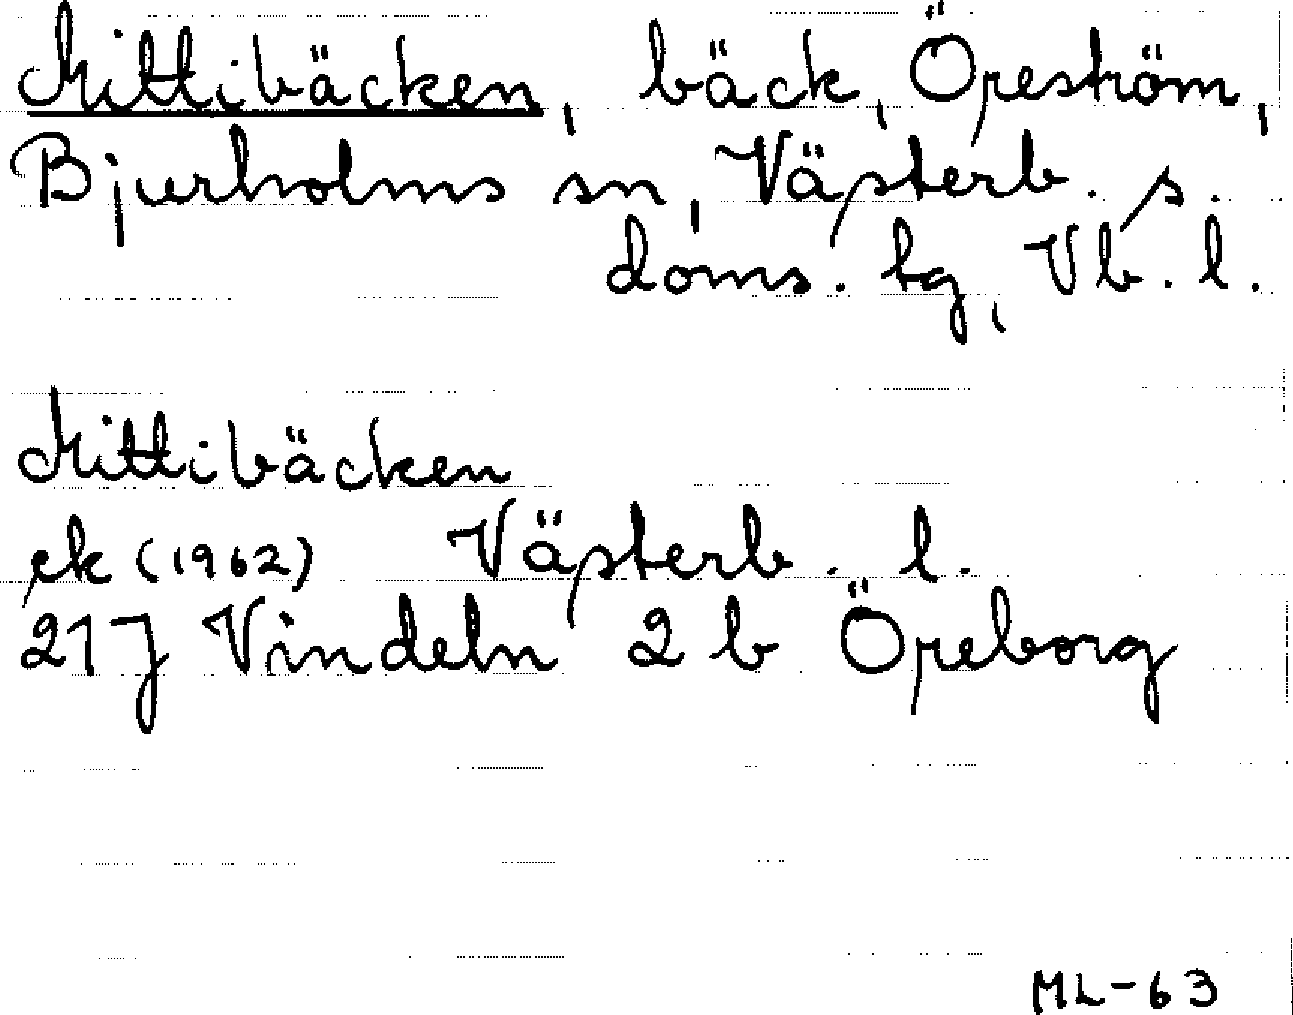 Mittibäcken, bäck, Öreström,
Bjurholms sn, Västerb. s.
doms. tg, Vb. l.
Mittibäcken
ek (1962) Västerb. l.
21J Vindeln 2 b Öreborg
ML-63